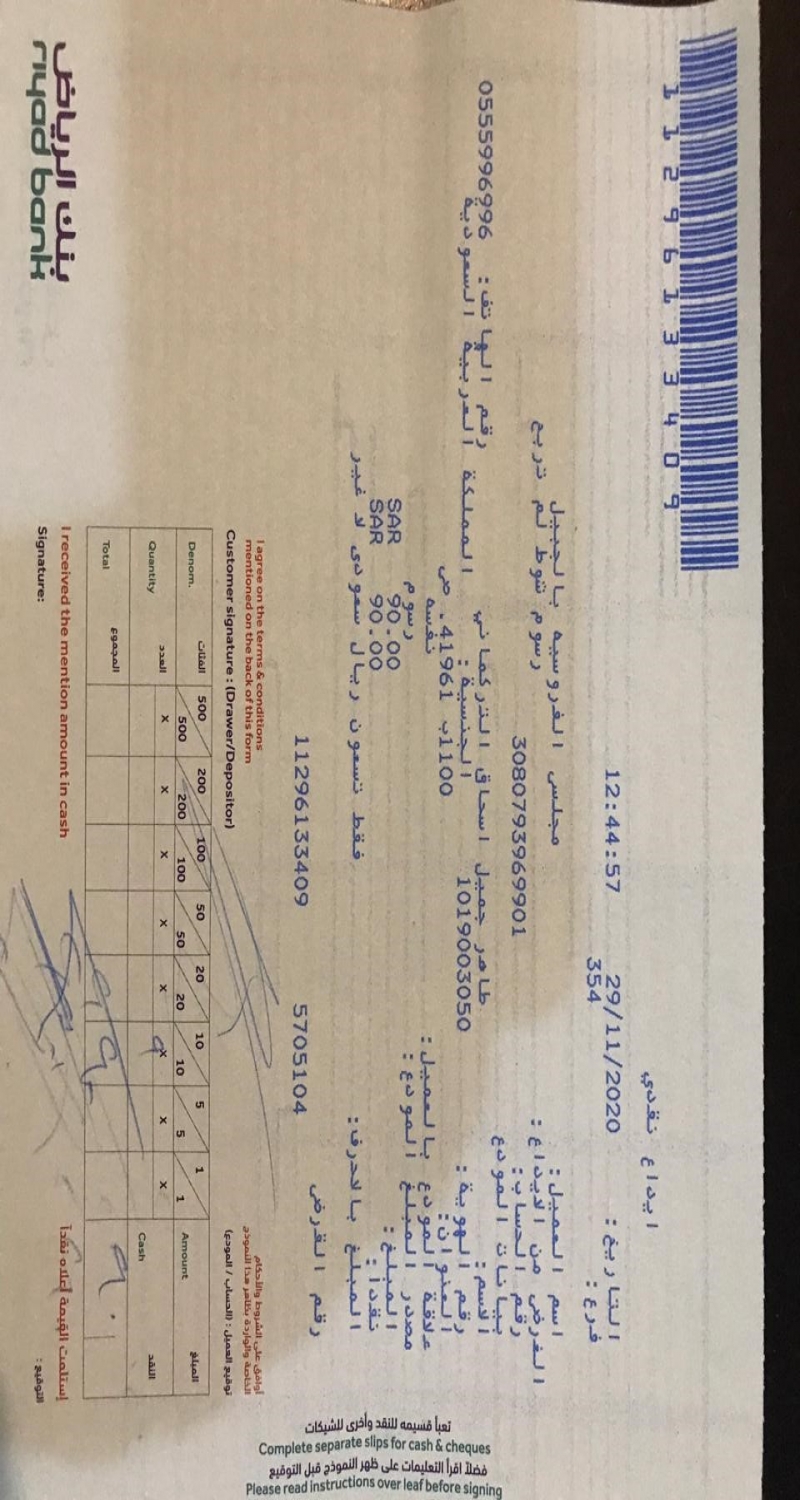 1 1 2 9 6 1 3 3 4 0 9
بنك الرياض
riyad bank
ايداع نقدي
التاريخ: 29/11/2020 12:44:57
فرع: 354
اسم العميل: مجلس الفروسيه بالجبيل
الغرض من الايداع: رسوم شوط لم تربح
رقم الحساب: 3080793969901
بيانات المودع
الاسم: طاهر جميل اسحاق التركماني رقم الهاتف: 0555996996
رقم الهوية: 1019003050 الجنسية: المملكة العربية السعودية
العنوان: 1100ب 41961. ص
علاقة المودع بالعميل: نفسه
مصدر المبلغ المودع: رسوم
المبلغ: SAR 90.00
نقدا: SAR 90.00
المبلغ بالاحرف: فقط تسعون ريال سعودى لا غير
رقم القرض 5705104 11296133409
I agree on the terms & conditions
mentioned on the back of this form
أوافق على الشروط والأحكام
الخاصة والواردة بظاهر هذا النموذج
Customer signature : (Drawer/Depositor)
توقيع العميل : (الحساب / المودع)
Denom. الفئات 500 200 100 50 20 10 5 1 Amount المبلغ
500 200 100 50 20 10 5 1
Quantity العدد x x x x x 9 x x x Cash النقد
Total المجموع
I received the mention amount in cash
إستلمت القيمة أعلاه نقداً
Signature: التوقيع :
تعبأ قسيمه للنقد وأخرى للشيكات
Complete separate slips for cash & cheques
فضلاً اقرأ التعليمات على ظهر النموذج قبل التوقيع
Please read instructions over leaf before signing